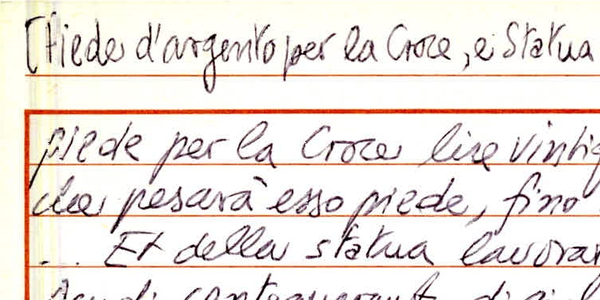 [Piede d'argento per la Croce, e Statua
piede per la Croce lire vinti
che pesarà esso piede, fino
... Et della statua lavorar